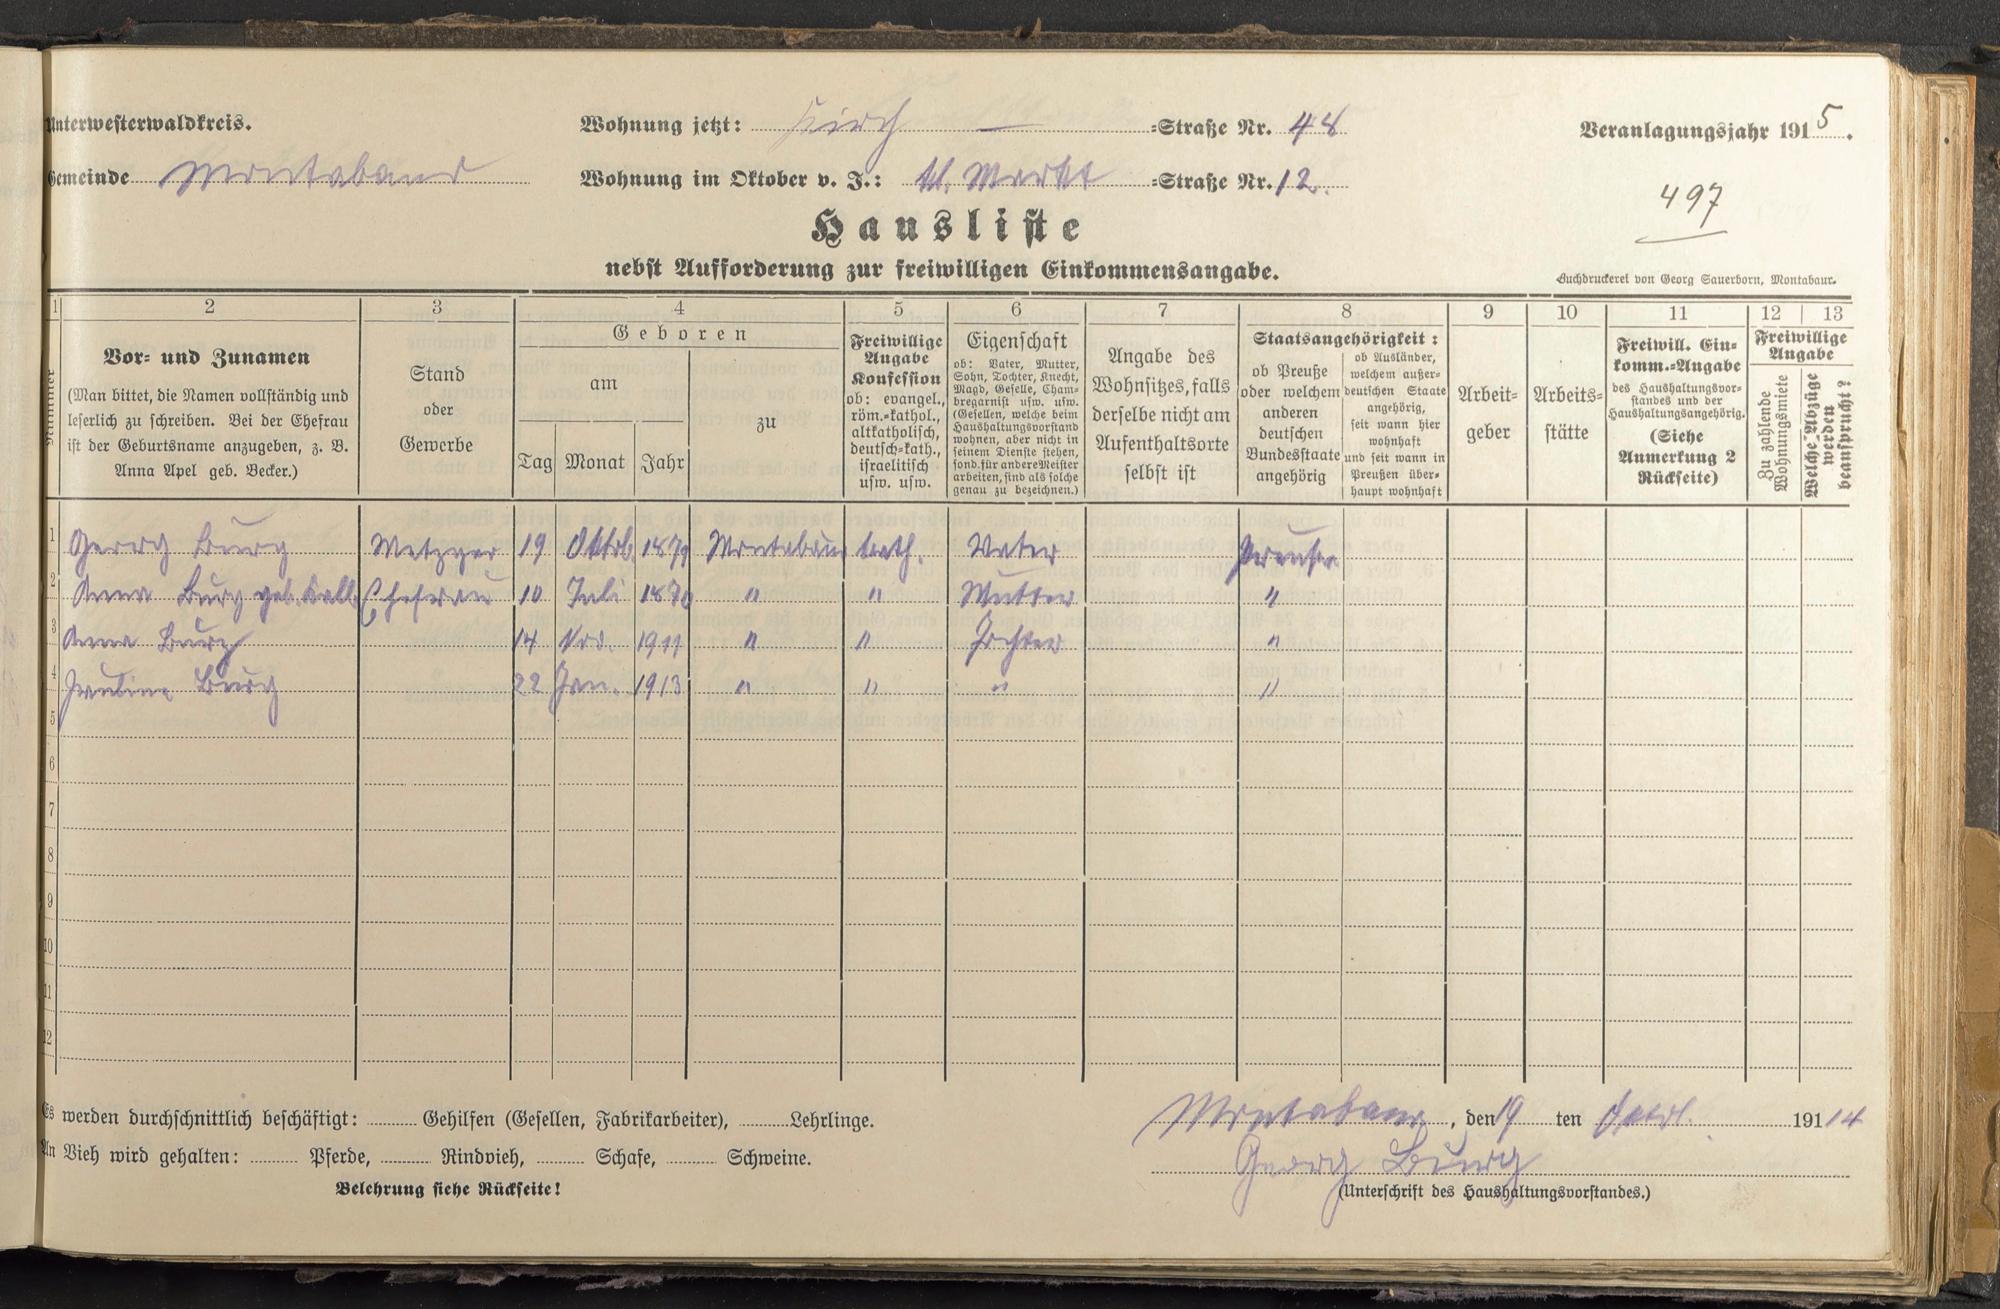 Unterwesterwaldkreis.
Wohnung jetzt: Kirch — -Straße Nr. 48
Veranlagungsjahr 1915.
Gemeinde Montabaur
Wohnung im Oktober v. J.: kl. Markt -Straße Nr. 12.
497
Hausliste
nebst Aufforderung zur freiwilligen Einkommensangabe.
Buchdruckerei von Georg Sauerborn, Montabaur.
1 2 3 4 5 6 7 8 9 10 11 12 13
Nummer
Vor- und Zunamen
(Man bittet, die Namen vollständig und
leserlich zu schreiben. Bei der Ehefrau
ist der Geburtsname anzugeben, z. B.
Anna Apel geb. Becker.)
Stand
oder
Gewerbe
Geboren
am
Tag Monat Jahr
zu
Freiwillige
Angabe
Konfession
ob: evangel.,
röm.-kathol.,
altkatholisch,
deutsch-kath.,
israelitisch
usw. usw.
Eigenschaft
ob: Vater, Mutter,
Sohn, Tochter, Knecht,
Magd, Geselle, Cham-
bregarnist usw. usw.
(Gesellen, welche beim
Haushaltungsvorstand
wohnen, aber nicht in
seinem Dienste stehen,
sond. für andere Meister
arbeiten, sind als solche
genau zu bezeichnen.)
Angabe des
Wohnsitzes, falls
derselbe nicht am
Aufenthaltsorte
selbst ist
Staatsangehörigkeit:
ob Preuße
oder welchem
anderen
deutschen
Bundesstaate
angehörig
ob Ausländer,
welchem außer-
deutschen Staate
angehörig,
seit wann hier
wohnhaft
und seit wann in
Preußen über-
haupt wohnhaft
Arbeit-
geber
Arbeits-
stätte
Freiwill. Ein-
komm.-Angabe
des Haushaltungsvor-
standes und der
Haushaltungsangehörig.
(Siehe
Anmerkung 2
Rückseite)
Freiwillige
Angabe
Zu zahlende
Wohnungsmiete
Welche Abzüge
werden
beansprucht?
1 Georg Burg Metzger 19 Oktob. 1879 Montabaur kath. Vater Preuße
2 Anna Burg geb. Kalb Ehefrau 10 Juli 1870 " " Mutter "
3 Anna Burg 14 Nov. 1911 " " Tochter "
4 Pauline Burg 22 Jan. 1913 " " " "
5
6
7
8
9
10
11
12
Es werden durchschnittlich beschäftigt: Gehilfen (Gesellen, Fabrikarbeiter), Lehrlinge.
Montabaur, den 19 ten Oktob. 19114
An Vieh wird gehalten: Pferde, Rindvieh, Schafe, Schweine.
Georg Burg
Belehrung siehe Rückseite!
(Unterschrift des Haushaltungsvorstandes.)